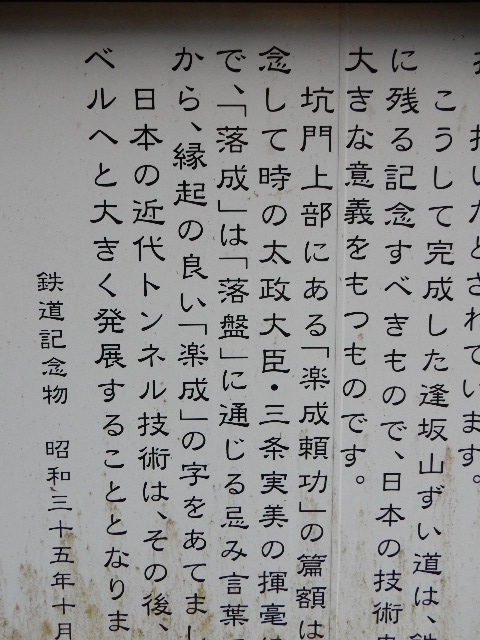 描いたとされています。
こうして完成した逢坂山ずい道は、
に残る記念すべきもので、日本の技術
大きな意義をもつものです。
坑門上部にある「楽成頼功」の篇額は
念して時の太政大臣・三条実美の揮毫
で、「落成」は「落盤」に通じる忌み言葉
から、縁起の良い「楽成」の字をあてまし
日本の近代トンネル技術は、その後、
ベルへと大きく発展することとなりま
鉄道記念物 昭和三十五年十月